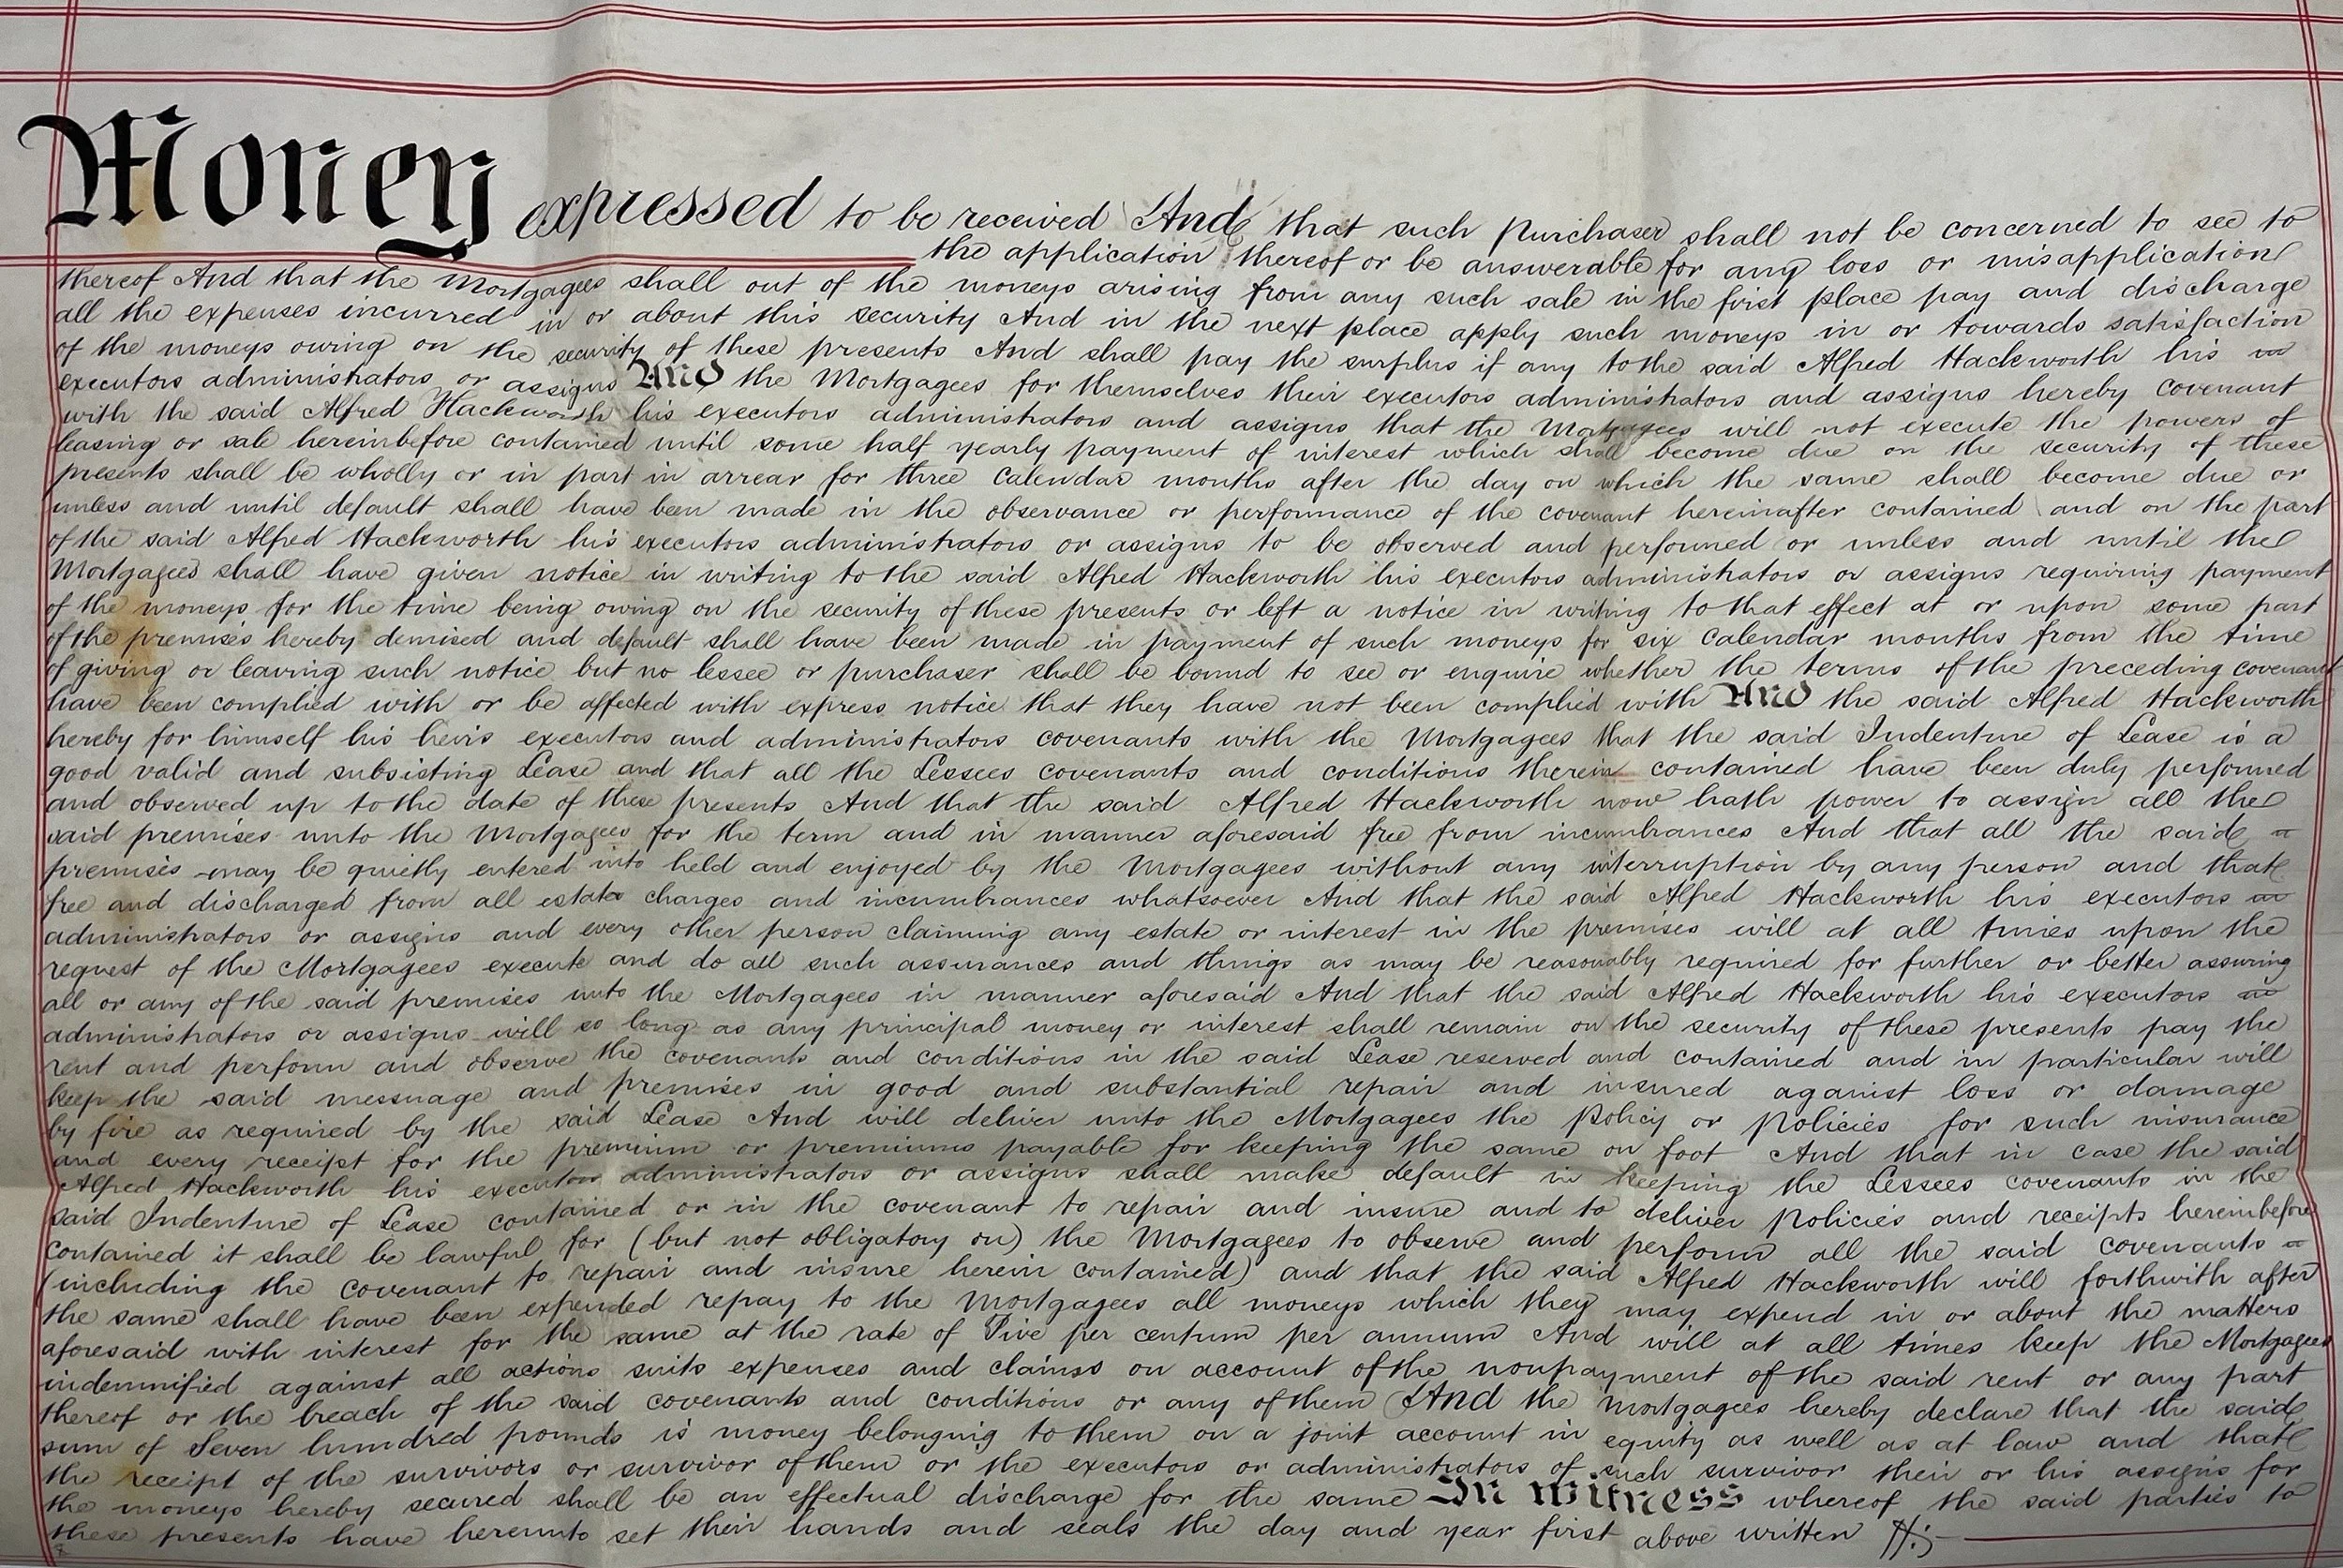 Money expressed to be received And that such Purchaser shall not be concerned to see to
the application thereof or be answerable for any loss or misapplication
thereof And that the Mortgagees shall out of the moneys arising from any such sale in the first place pay and discharge
all the expenses incurred in or about this security And in the next place apply such moneys in or towards satisfaction
of the moneys owing on the security of these presents And shall pay the surplus if any to the said Alfred Hackworth his
executors administrators or assigns And the Mortgagees for themselves their executors administrators and assigns hereby covenant
with the said Alfred Hackworth his executors administrators and assigns that the Mortgagees will not execute the powers of
leasing or sale hereinbefore contained until some half yearly payment of interest which shall become due on the security of these
presents shall be wholly or in part in arrear for three Calendar months after the day on which the same shall become due or
unless and until default shall have been made in the observance or performance of the covenant hereinafter contained and on the part
of the said Alfred Hackworth his executors administrators or assigns to be observed and performed or unless and until the
Mortgagees shall have given notice in writing to the said Alfred Hackworth his executors administrators or assigns requiring payment
of the moneys for the time being owing on the security of these presents or left a notice in writing to that effect at or upon some part
of the premises hereby demised and default shall have been made in payment of such moneys for six Calendar months from the time
of giving or leaving such notice but no lessee or purchaser shall be bound to see or enquire whether the terms of the preceding covenant
have been complied with or be affected with express notice that they have not been complied with And the said Alfred Hackworth
hereby for himself his heirs executors and administrators covenants with the Mortgagees that the said Indenture of Lease is a
good valid and subsisting Lease and that all the Lessees covenants and conditions therein contained have been duly performed
and observed up to the date of these presents And that the said Alfred Hackworth now hath power to assign all the
said premises unto the Mortgagees for the term and in manner aforesaid free from incumbrances And that all the said
premises may be quietly entered into held and enjoyed by the Mortgagees without any interruption by any person and that
free and discharged from all estate charges and incumbrances whatsoever And that the said Alfred Hackworth his executors
administrators or assigns and every other person claiming any estate or interest in the premises will at all times upon the
request of the Mortgagees execute and do all such assurances and things as may be reasonably required for further or better assuring
all or any of the said premises unto the Mortgagees in manner aforesaid And that the said Alfred Hackworth his executors
administrators or assigns will so long as any principal money or interest shall remain on the security of these presents pay the
rent and perform and observe the covenants and conditions in the said Lease reserved and contained and in particular will
keep the said messuage and premises in good and substantial repair and insured against loss or damage
by fire as required by the said Lease And will deliver unto the Mortgagees the Policy or Policies for such insurance
and every receipt for the premium or premiums payable for keeping the same on foot And that in case the said
Alfred Hackworth his executors administrators or assigns shall make default in keeping the Lessees covenants in the
said Indenture of Lease contained or in the covenant to repair and insure and to deliver policies and receipts hereinbefore
contained it shall be lawful for (but not obligatory on) the Mortgagees to observe and perform all the said covenants
(including the covenant to repair and insure herein contained) and that the said Alfred Hackworth will forthwith after
the same shall have been expended repay to the Mortgagees all moneys which they may expend in or about the matters
aforesaid with interest for the same at the rate of Five per centum per annum And will at all times keep the Mortgagees
indemnified against all actions suits expenses and claims on account of the nonpayment of the said rent or any part
thereof or the breach of the said covenants and conditions or any of them And the Mortgagees hereby declare that the said
sum of Seven hundred pounds is money belonging to them on a joint account in equity as well as at law and that
the receipt of the survivors or survivor of them or the executors or administrators of such survivor their or his assigns for
the moneys hereby secured shall be an effectual discharge for the same In Witness whereof the said parties to
these presents have hereunto set their hands and seals the day and year first above written